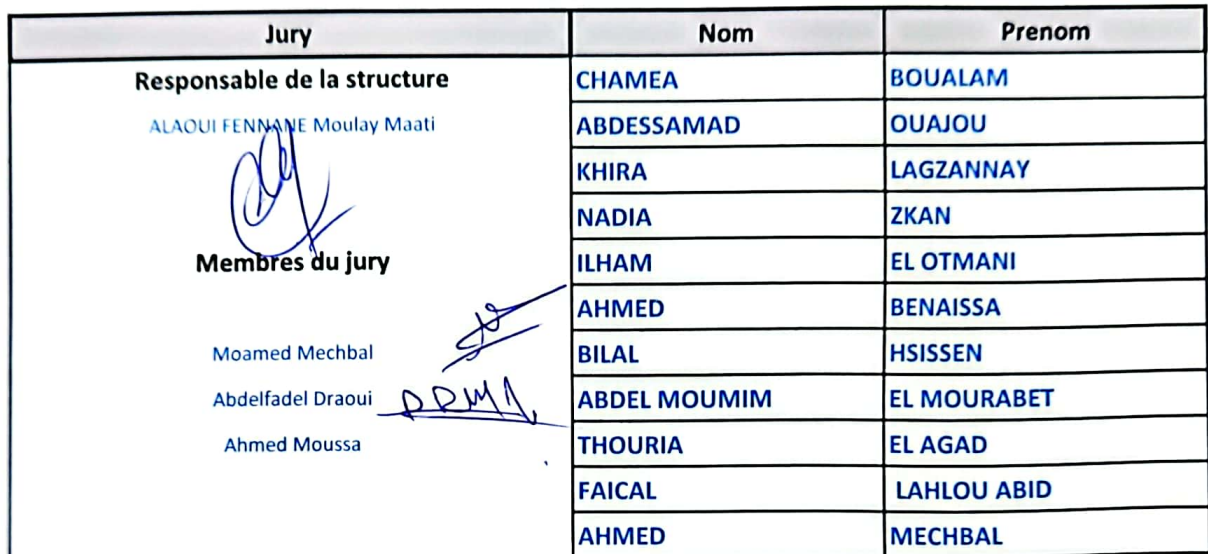 Jury Nom Prenom
Responsable de la structure
ALAOUI FENNANE Moulay Maati
Membres du jury
Moamed Mechbal
Abdelfadel Draoui
Ahmed Moussa
CHAMEA BOUALAM
ABDESSAMAD OUAJOU
KHIRA LAGZANNAY
NADIA ZKAN
ILHAM EL OTMANI
AHMED BENAISSA
BILAL HSISSEN
ABDEL MOUMIM EL MOURABET
THOURIA EL AGAD
FAICAL LAHLOU ABID
AHMED MECHBAL